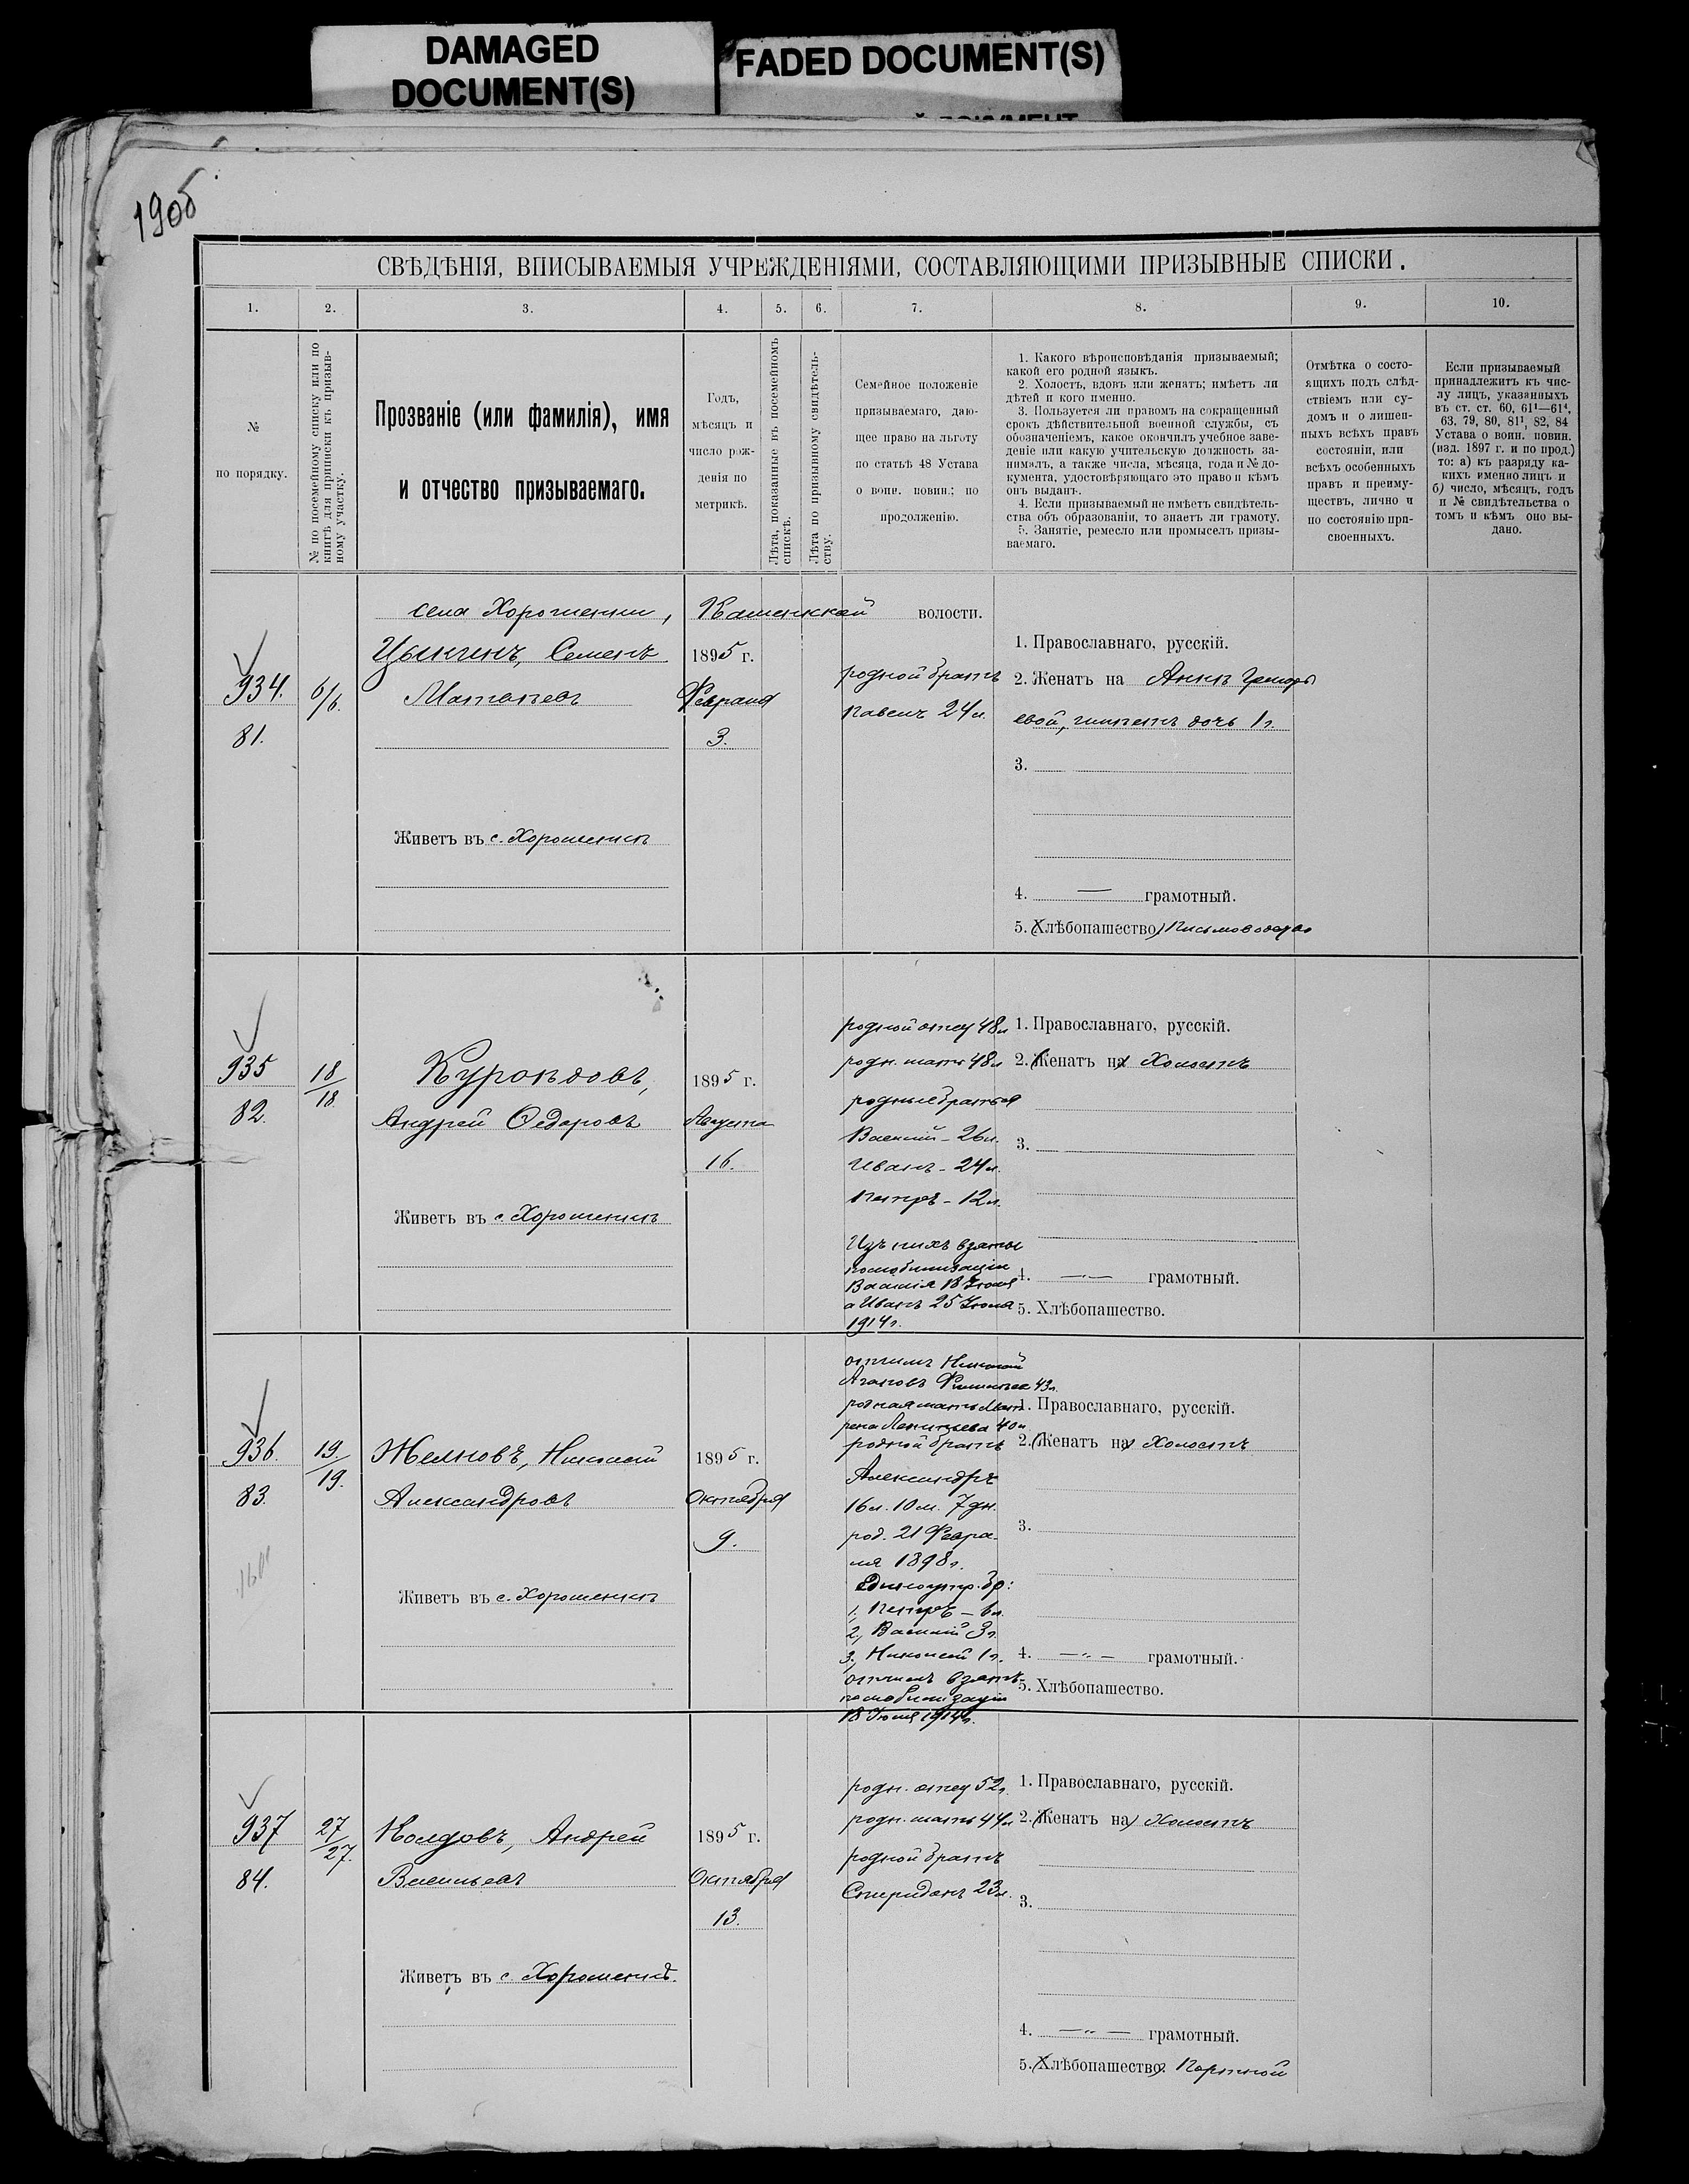 DAMAGED
DOCUMENT(S)
FADED DOCUMENT(S)
1905
СВѢДѢНІЯ, ВПИСЫВАЕМЫЯ УЧРЕЖДЕНІЯМИ, СОСТАВЛЯЮЩИМИ ПРИЗЫВНЫЕ СПИСКИ.
1. 2. 3. 4. 5. 6. 7. 8. 9. 10.
№
по порядку.
№ по посемейному списку или по
книгѣ для приписки къ призыв-
ному участку.
Прозваніе (или фамилія), имя
и отчество призываемаго.
Годъ,
мѣсяцъ и
число рож-
денія по
метрикѣ.
Лѣта, показанные въ посемейномъ
спискѣ.
Лѣта по призывному свидѣтель-
ству.
Семейное положеніе
призываемаго, даю-
щее право на льготу
по статьѣ 48 Устава
о воин. повин.; по
продолженію.
1. Какого вѣроисповѣданія призываемый;
какой его родной языкъ.
2. Холостъ, вдовъ или женатъ; имѣетъ ли
дѣтей и кого именно.
3. Пользуется ли правомъ на сокращенный
срокъ дѣйствительной военной службы, съ
обозначеніемъ, какое окончилъ учебное заве-
деніе или какую учительскую должность за-
нималъ, а также числа, мѣсяца, года и № до-
кумента, удостовѣряющаго это право и кѣмъ
онъ выданъ.
4. Если призываемый не имѣетъ свидѣтель-
ства объ образованіи, то знаетъ ли грамоту.
5. Занятіе, ремесло или промыселъ призы-
ваемаго.
Отмѣтка о состо-
ящихъ подъ слѣд-
ствіемъ или су-
домъ и о лишен-
ныхъ всѣхъ правъ
состоянія, или
всѣхъ особенныхъ
правъ и преиму-
ществъ, лично и
по состоянію при-
своенныхъ.
Если призываемый
принадлежитъ къ чис-
лу лицъ, указанныхъ
въ ст. ст. 60, 61¹—61⁴,
63, 79, 80, 81¹, 82, 84
Устава о воин. повин.
(изд. 1897 г. и по прод.)
то: а) къ разряду ка-
кихъ именно лицъ и
б) число, мѣсяцъ, годъ
и № свидѣтельства о
томъ и кѣмъ оно вы-
дано.
села Хорошенки, Каменской волости.
934.
81.
6/6.
Цынгинъ, Семенъ
Матвѣевъ
Живетъ въ с. Хорошенкѣ
1895 г.
Февраля
3.
родной братъ
Павелъ 24 л.
1. Православнаго, русскій.
2. Женатъ на Аннѣ Григорь
евой, имѣетъ дочь 1 г.
3.
4. — грамотный.
5. (Хлѣбопашество) Письмоводство
935
82.
18/18.
Куроѣдовъ,
Андрей Ѳедоровъ
Живетъ въ с. Хорошенкѣ
1895 г.
Августа
16.
родной отец 48 л
родн. мать 48 л
родные братья
Василій - 26 л.
Иванъ - 24 л.
Петръ - 12 л.
Изъ нихъ взяты
по мобилизаціи
Василій 18 Іюля
а Иванъ 25 Іюля
1914 г.
1. Православнаго, русскій.
2. (Женатъ на) Холостъ
3.
4. —„— грамотный.
5. Хлѣбопашество.
936.
83.
19./19.
Желновъ, Николай
Александровъ
Живетъ въ с. Хорошенкѣ
1895 г.
Октября
9.
отчимъ Николай
Агаповъ 43 л.
родная мать
40 л
родной братъ
Александръ
16 л. 10 м. 7 дн.
род. 21 Февра-
ля 1898 г.
Единоутр. бр:
1, Петръ - 6 л.
2, Василій 3 г.
3, Николай 1 г.
отчимъ взятъ
по мобилизаціи
18 Іюля 1914 г.
1. Православнаго, русскій.
2. (Женатъ на) Холостъ
3.
4. —„— грамотный.
5. Хлѣбопашество.
937
84.
27/27.
Колдовъ, Андрей
Васильевъ
Живетъ въ с. Хорошенкѣ.
1895 г.
Октября
13.
родн. отец 52 г.
родн. мать 44 л
родной братъ
Спиридонъ 23 л.
1. Православнаго, русскій.
2. (Женатъ на) Холостъ
3.
4. —„— грамотный.
5. (Хлѣбопашество). Портной